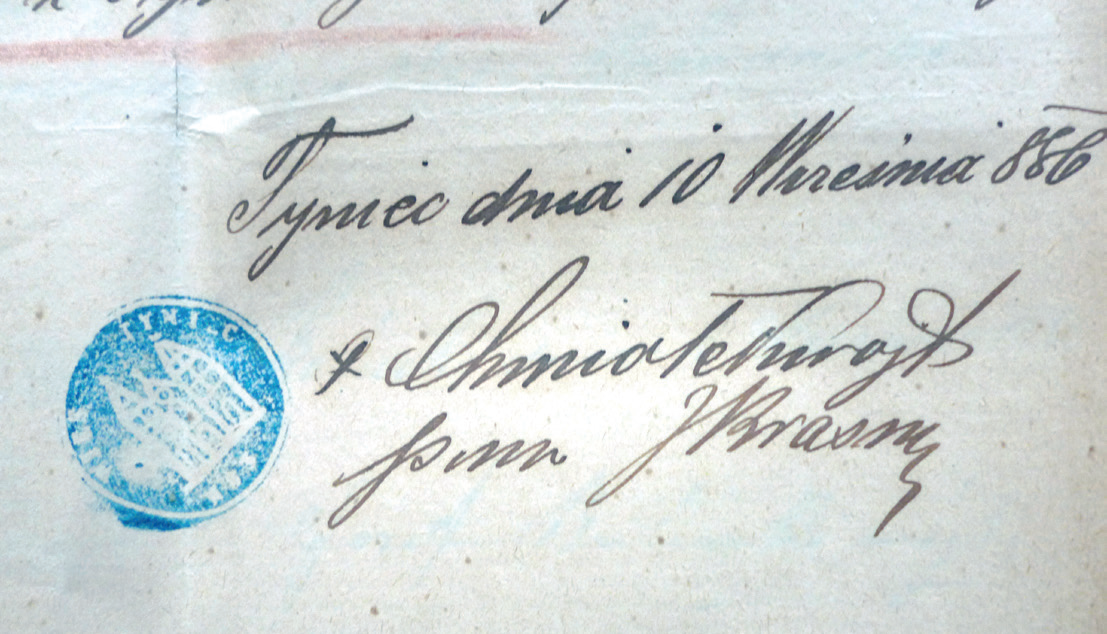 Tyniec dnia 10 Września 886
+ Chmiołek wójt
JKrasny
TYNIEC